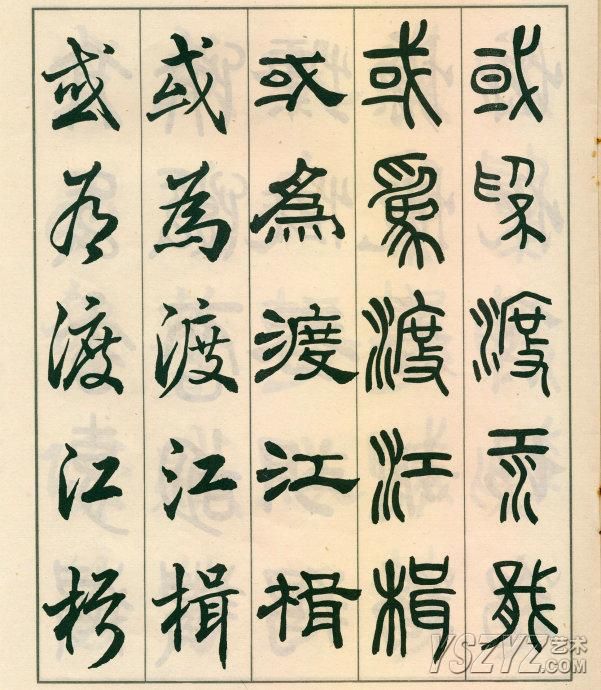 或為渡江楫
或為渡江楫
或為渡江楫
或為渡江楫
或為渡江楫
YSZYZ艺术